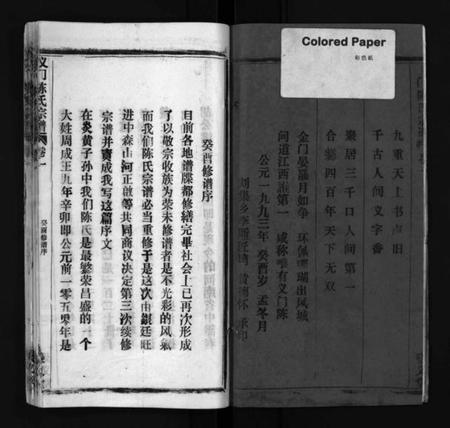 Colored Paper
彩色紙
九重天上书点旧
千古人间义字香
聚居三千口人间第一
合爨四百年天下无双
金门
环佩
出凤城
问道江西谁第一
咸称唯有义门陈
公元一九九三年癸酉岁孟冬月
癸酉修谱序
目前各地谱牒都修缮完毕社会上已再次形成
了以敬宗收族为荣未修谱者是不光彩的风气
而我们陈氏宗谱必当重修于是这次由银廷旺
进中森山河正敢等共同商议决定第三次续修
宗谱并责成我写这篇序文
在炎黄子孙中我们陈氏是最繁荣昌盛的一个
大姓周成王九年辛卯即公元前一零五零年是
义门陈氏宗谱
卷一
癸酉修谱序